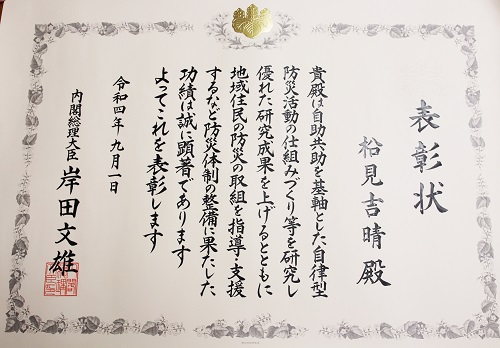 表彰状
松見吉晴殿
貴殿は自助共助を基軸とした自律型
防災活動の仕組みづくり等を研究し
優れた研究成果を上げるとともに
地域住民の防災の取組を指導・支援
するなど防災体制の整備に果たした
功績は誠に顕著であります
よってこれを表彰します
令和四年九月一日
内閣総理大臣 岸田文雄